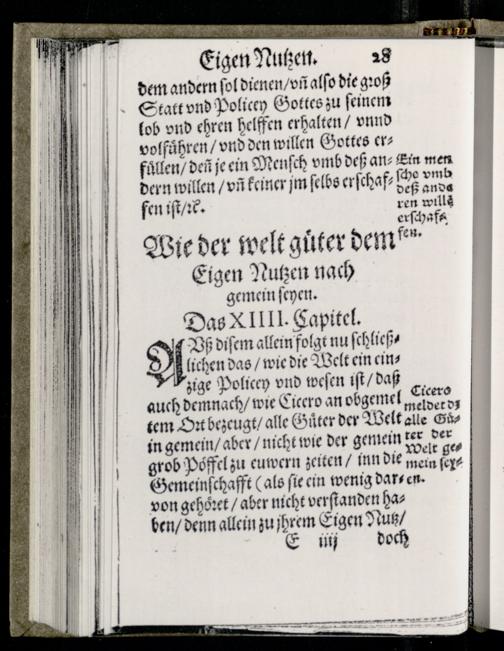 Eigen Nutzen. 28
dem andern sol dienen/ vñ also die groß
Statt vnd Policey Gottes zu seinem
lob vnd ehren helffen erhalten/ vnnd
volführen/ vnd den willen Gottes er-
füllen/ deñ je ein Mensch vmb deß an-
dern willen/ vñ keiner jm selbs erschaf-
fen ist/ ꝛc.
Ein men
sche vmb
deß ande
ren willē
erschaf-
fen.
Wie der welt güter dem
Eigen Nutzen nach
gemein seyen.
Das XIIII. Capitel.
AVß disem allein folgt nu schließ-
lichen das/ wie die Welt ein ein-
zige Policey vnd wesen ist/ daß
auch demnach/ wie Cicero an obgemel
tem Ort bezeugt/ alle Güter der Welt
in gemein/ aber/ nicht wie der gemein
grob Pöffel zu euwern zeiten/ inn die
Gemeinschafft (als sie ein wenig dar-
von gehöret/ aber nicht verstanden ha-
ben/ denn allein zu jhrem Eigen Nutz/
Cicero
meldet dz
alle Gü-
ter der
Welt ge-
mein sey-
en.
E iiij doch